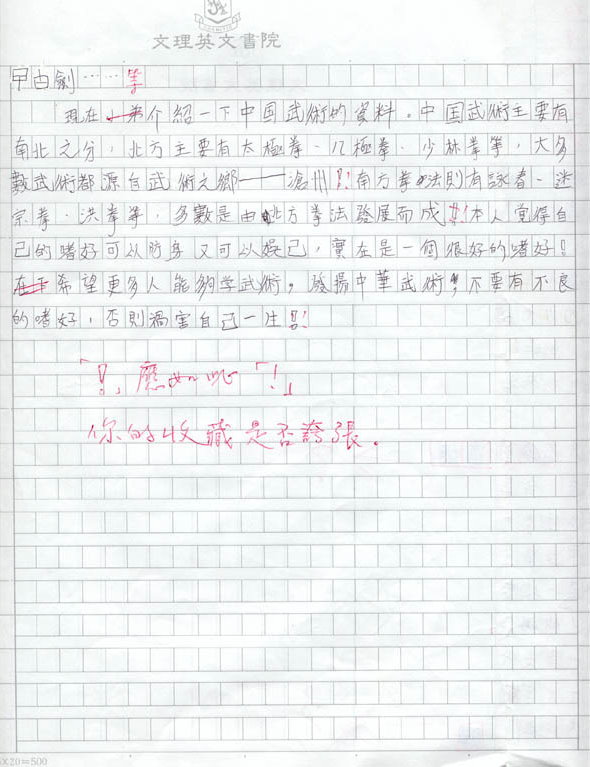 文理英文書院
曱甴劍……等
現在小弟介紹一下中国武術的資料。中国武術主要有
南北之分,北方主要有太極拳、八極拳、少林拳等,大多
數武術都源自武術之鄉——滄州!南方拳法則有詠春、迷
宗拳、洪拳等,多數是由北方拳法發展而成!本人覺得自
己的嗜好可以防身又可以娛己,實在是一個很好的嗜好!
希望更多人能夠学武術,發揚中華武術,不要有不良
的嗜好,否則禍害自己一生!
「!,應如此「!」
你的收藏是否誇張。
X20=500